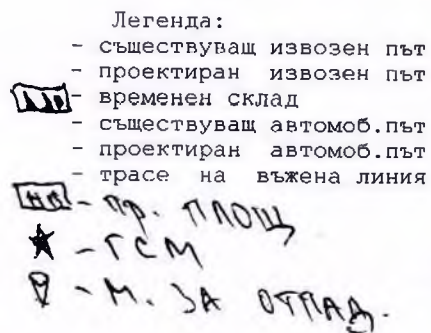 Легенда:
- съществуващ извозен път
- проектиран извозен път
- временен склад
- съществуващ автомоб.път
- проектиран автомоб.път
- трасе на въжена линия
- пр. площ
- ГСМ
- М. ЗА ОТПАД.